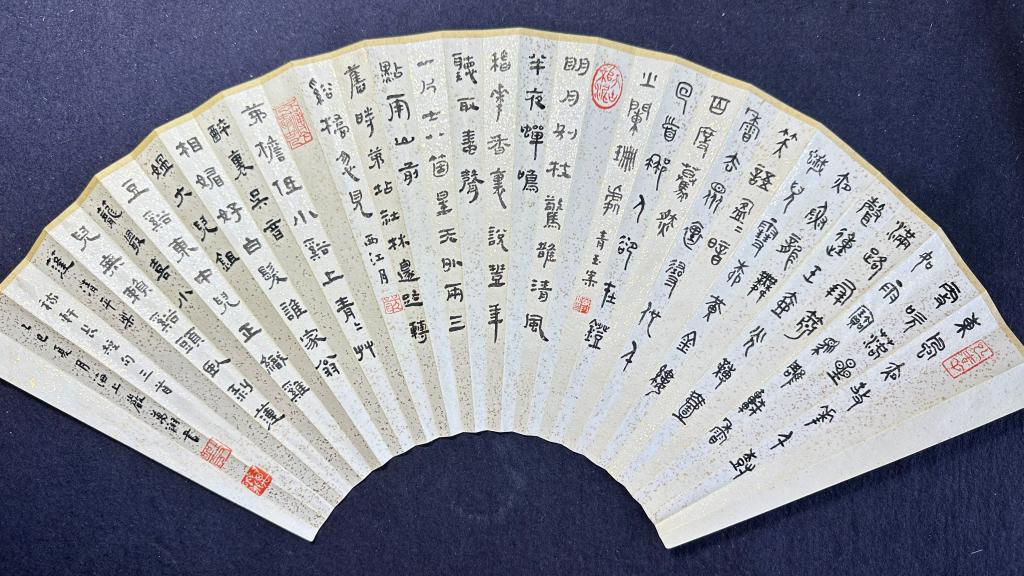 東風夜放花千樹
更吹落星
如雨寶馬雕車香
滿路鳳簫
聲動玉壺光轉一
夜魚龍舞
蛾兒雪柳黃金縷
笑語盈盈暗
香去眾裏尋他千
百度驀然
回首那人卻在燈
火闌珊處 青玉案
明月別枝驚鵲清風
半夜蟬鳴
稻花香裏說豐年
聽取蛙聲
一片七八箇星天外兩三
點雨山前
舊時茅店社林邊路轉
谿橋忽見 西江月
茅檐低小谿上青青艸
醉裏吳音
相媚好白髮誰家翁
媼大兒鉏
豆谿東中兒正織雞
籠最喜小
兒無賴谿頭臥剝蓮
蓬 清平樂
稼軒長短句三首
乙巳夏月海上嚴書